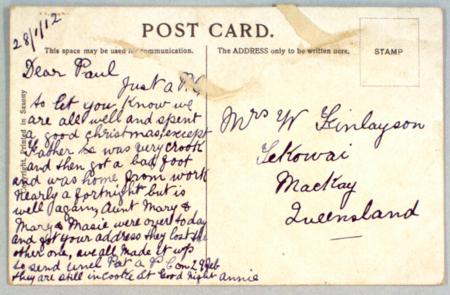 28/1/12
POST CARD.
This space may be used for communication.
The ADDRESS only to be written here.
STAMP
Copyright Printed in Saxony
Dear Paul
Just a P.C
to let you know we
are all well and spent
a good christmas, except
Father he was very crook
and then got a bad foot
and was home from work
nearly a fortnight but is
well again, Aunt Mary &
Mary & Masie were over today
and got your address they lost the
other one, we all made it up
to send uncle Pat a P.C on 29 Feb
they are still in Cooke St Good Night Annie
Mrs W Finlayson
Sekowai
Mackay
Queensland